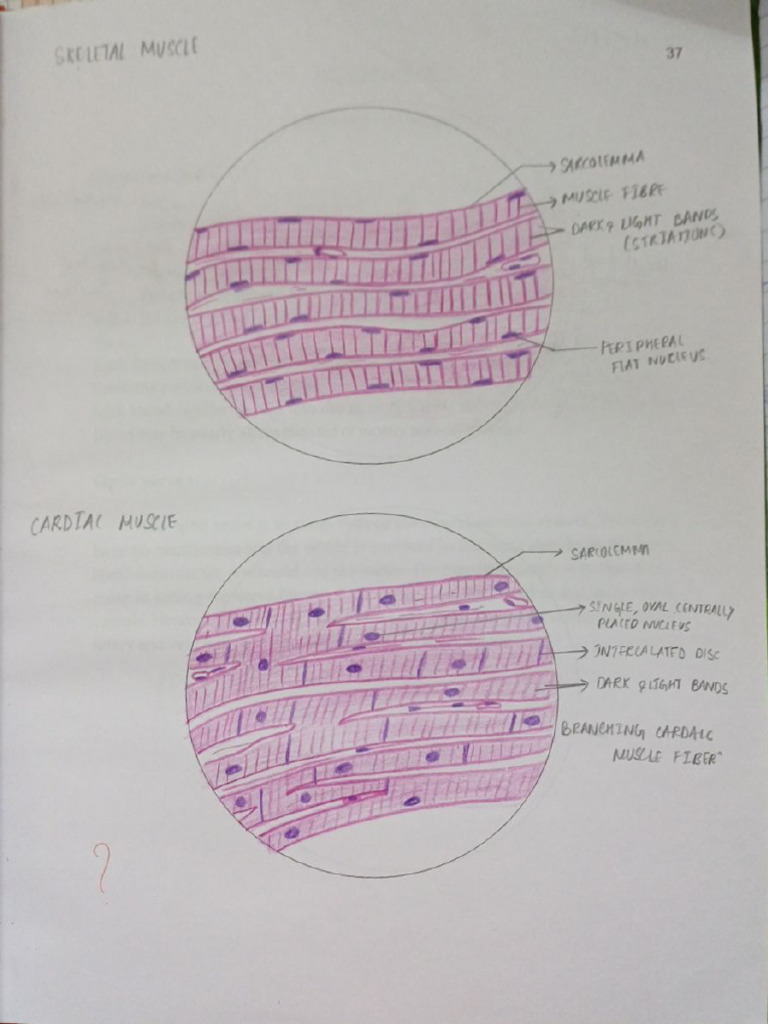 SKELETAL MUSCLE
37
SARCOLEMMA
MUSCLE FIBRE
DARK & LIGHT BANDS
(STRIATIONS)
PERIPHERAL
FLAT NUCLEUS
CARDIAC MUSCLE
SARCOLEMMA
SINGLE, OVAL CENTRALLY
PLACED NUCLEUS
INTERCALATED DISC
DARK & LIGHT BANDS
BRANCHING CARDAIC
MUSCLE FIBER
?